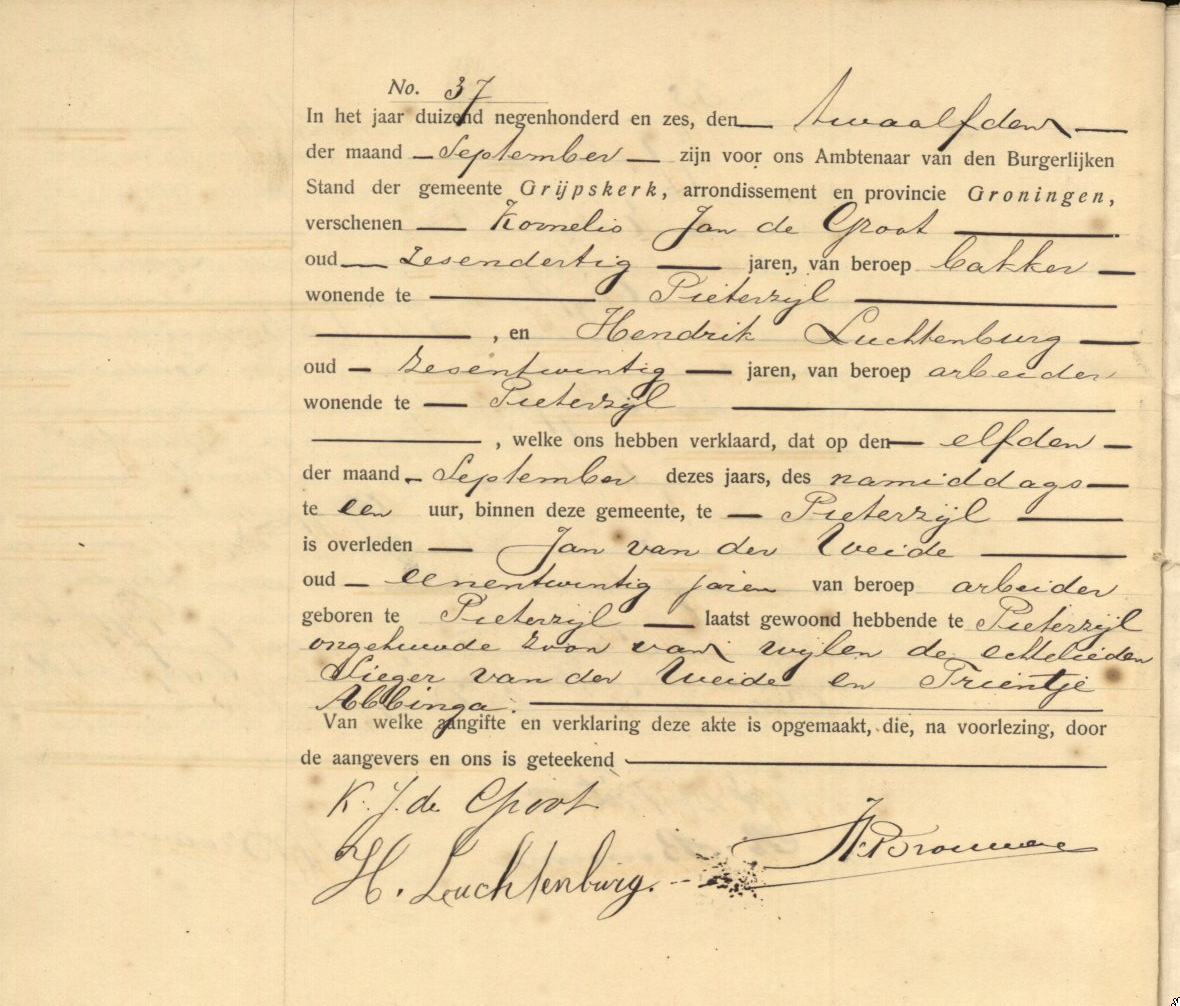 No. 37
In het jaar duizend negenhonderd en zes, den twaalfden
der maand September zijn voor ons Ambtenaar van den Burgerlijken
Stand der gemeente Grijpskerk, arrondissement en provincie Groningen,
verschenen Kornelis Jan de Groot
oud zesendertig jaren, van beroep bakker
wonende te Pieterzijl
, en Hendrik Luchtenburg
oud zesentwintig jaren, van beroep arbeider
wonende te Pieterzijl
, welke ons hebben verklaard, dat op den elfden
der maand September dezes jaars, des namiddags
te een uur, binnen deze gemeente, te Pieterzijl
is overleden Jan van der Weide
oud eenentwintig jaren van beroep arbeider
geboren te Pieterzijl laatst gewoond hebbende te Pieterzijl
ongehuwde zoon van wijlen de echtelieden
Sieger van der Weide en Trientje
Abbinga.
Van welke aangifte en verklaring deze akte is opgemaakt, die, na voorlezing, door
de aangevers en ons is geteekend
K. J. de Groot
H. Luchtenburg. Brouwer